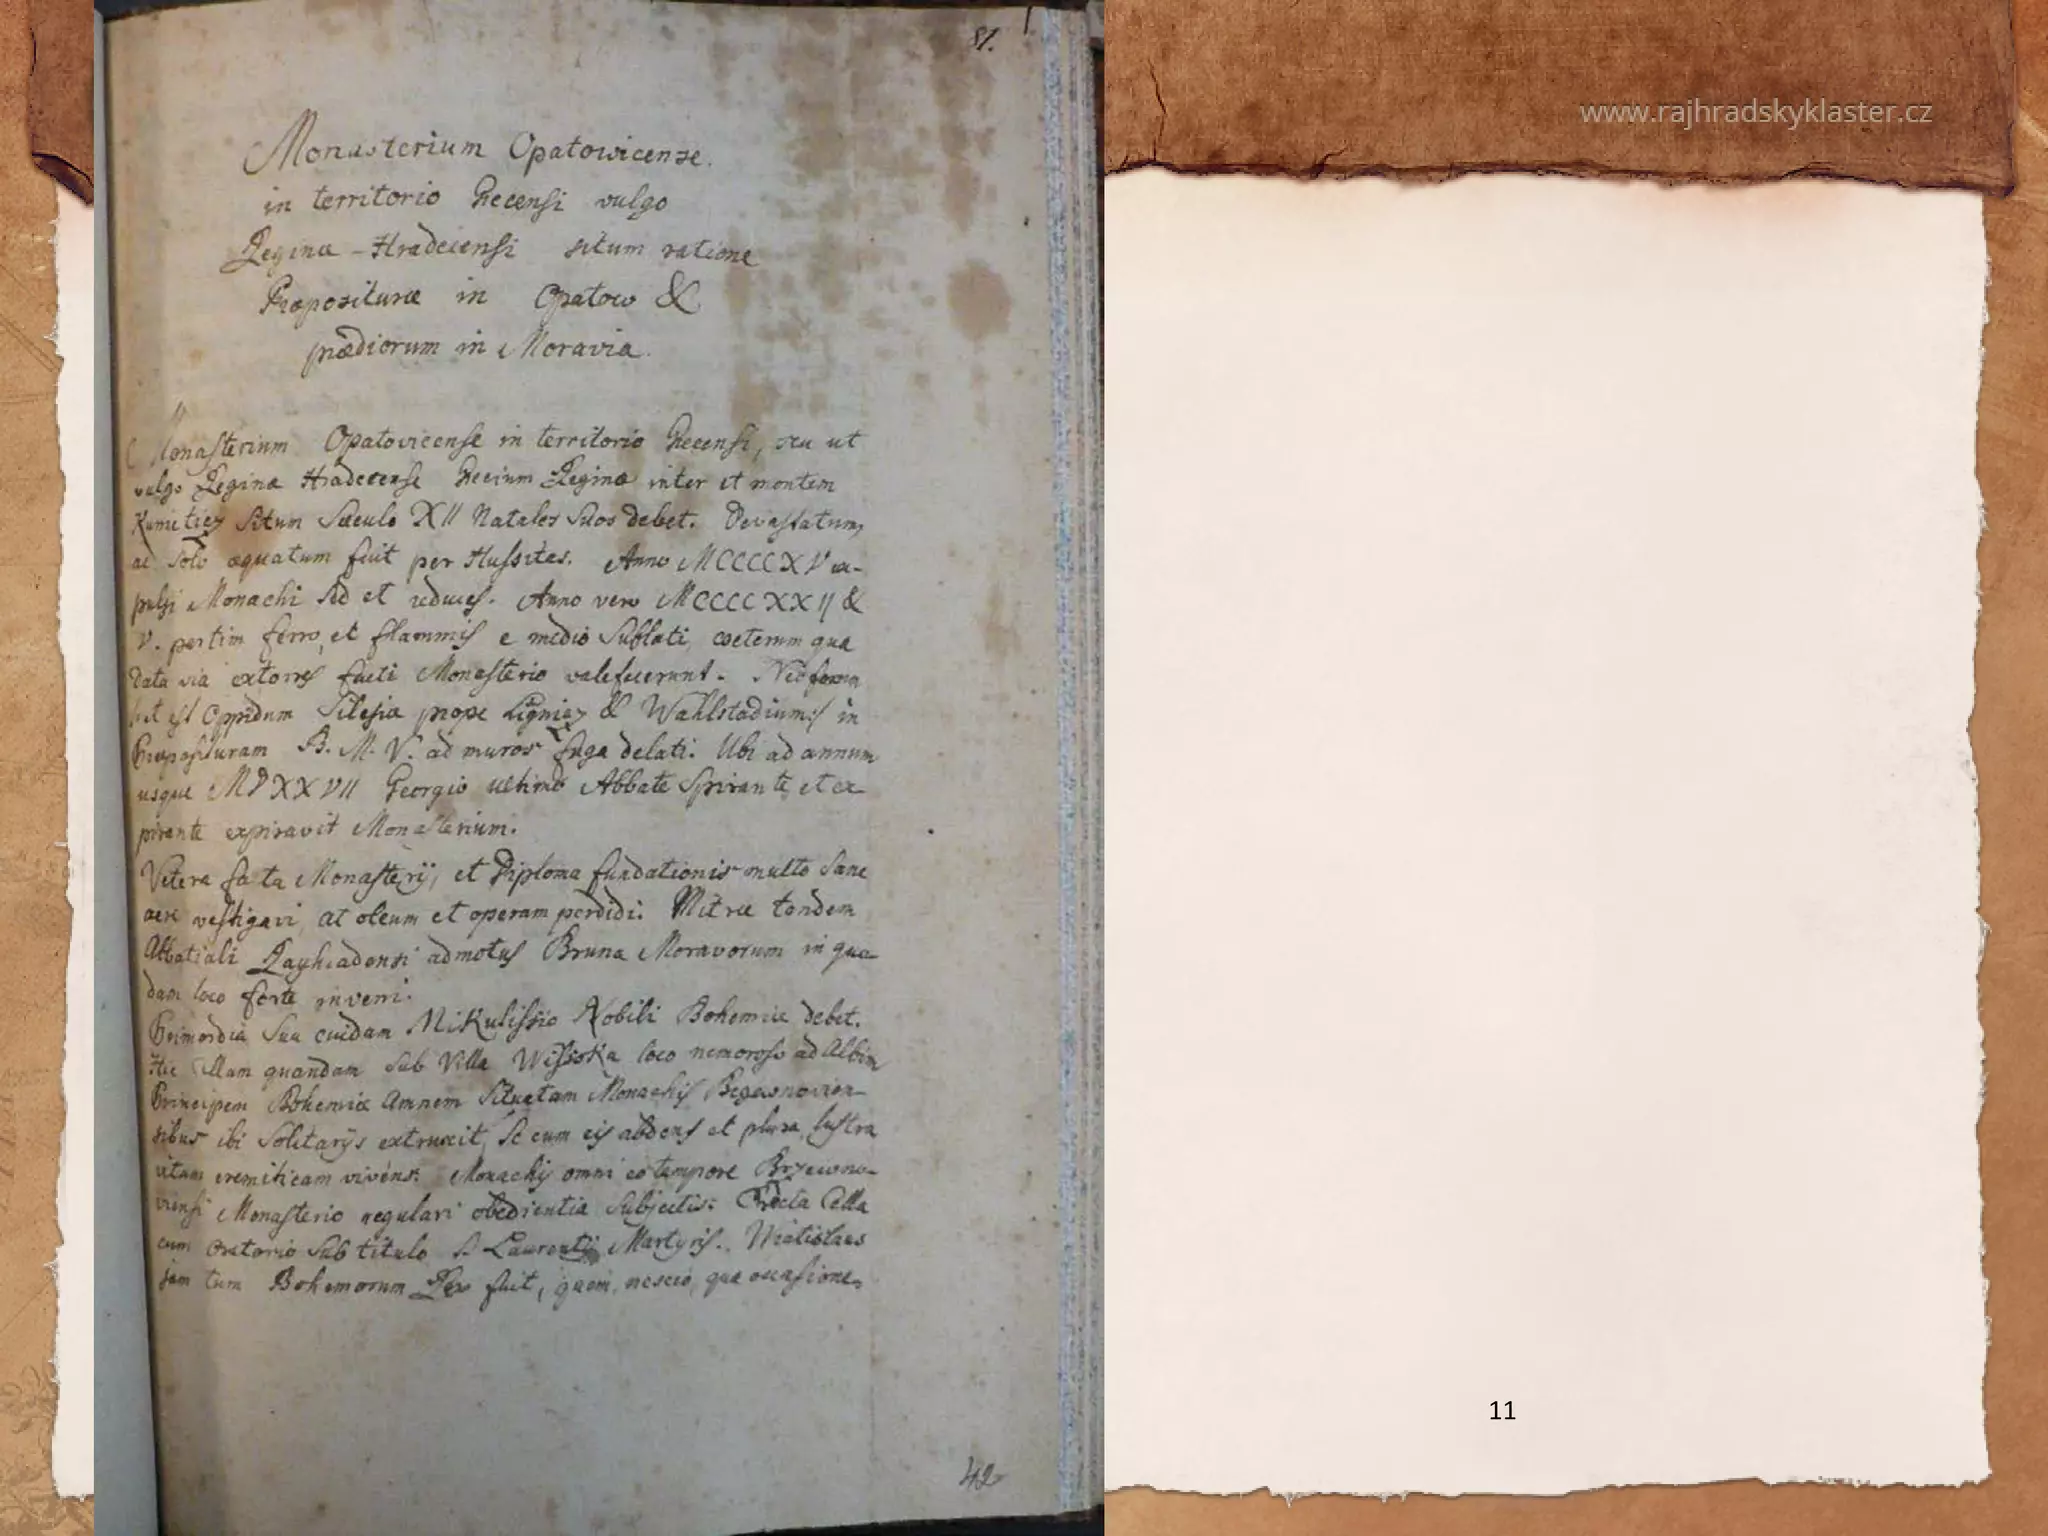 81.
Monasterium Opatowicense.
in territorio Grecensi vulgo
Reginæ-Hradecensi situm ratione
Præposituræ in Opatow &
prædiorum in Moravia.
Monasterium Opatovicense in territorio Grecensi, seu ut
vulgo Reginæ Hradecense Grecium Reginæ inter et montem
Kunieticz Situm Sæculo XII Natales Suos debet. Devastatum,
ac Solo æquatum fuit per Hussitas. Anno MCCCCXV ex-
pulsi Monachi Sed et reduces. Anno vero MCCCCXXII &
V. partim ferro, et flammis e medio Sublati, cœterum qua
data via extorres facti Monasterio valefecerunt. Neo
est Oppidum Silesiæ prope Lignicz & Wahlstadium:/ in
Præposituram B. M. V. ad muros fuga delati. Ubi ad annum
usque MDXXVII Georgio ultimo Abbate Spirante, et ex-
pirante expiravit Monasterium.
Vetera fata Monasterij, et Diploma fundationis multo Sane
aere vestigavi, at oleum et operam perdidi. Mitræ tandem
Abbatiali Rayhradensi admotus Brunæ Moravorum in qua-
dam loco forte inveni.
Primordia Sua cuidam Mikulissio Nobili Bohemiæ debet.
Hic Cellam quandam Sub Villa Wissoka loco nemoroso ad Albim
Principem Bohemiæ Amnem Situatam Monachis
sibus ibi Solitarijs extruxit, Se cum eis abdens et plura lustra
vitam eremiticam vivens: Monachis omni eo tempore Brzewno-
viensi Monasterio regulari obedientia Subjectis: Erecta Cella
cum Oratorio Sub titulo S. Laurentij Martyris. Wratislaus
jam tum Bohemorum Rex fuit, quem, nescio, qua occasione,
42
www.rajhradskyklaster.cz
11